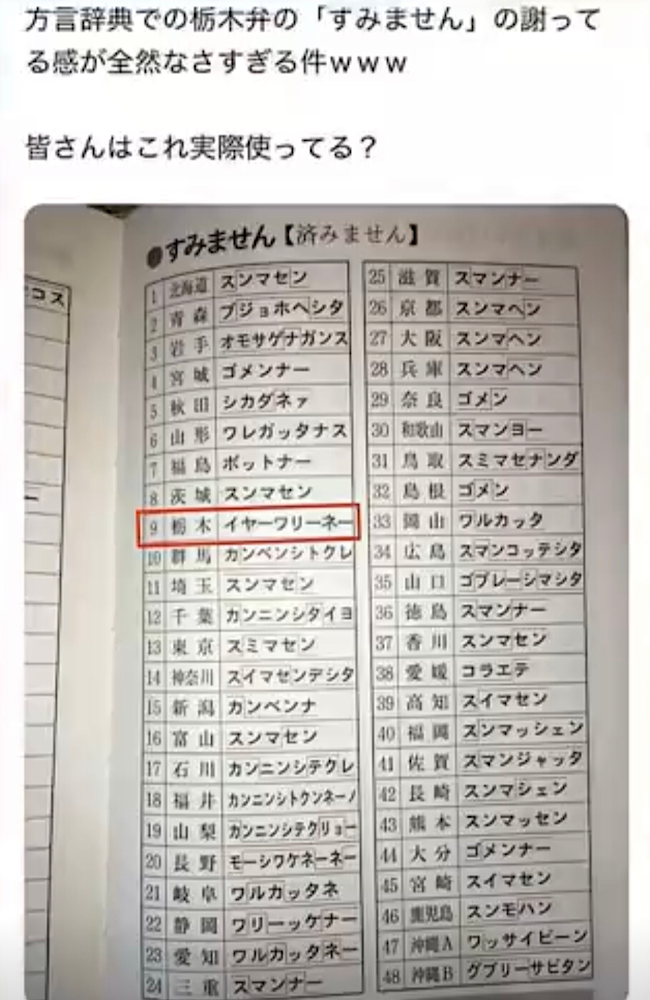 方言辞典での栃木弁の「すみません」の謝って
る感が全然なさすぎる件ｗｗｗ
皆さんはこれ実際使ってる？
コス
●すみません【済みません】
1 北海道 スンマセン
2 青森 ブジョホヘシタ
3 岩手 オモサゲナガンス
4 宮城 ゴメンナー
5 秋田 シカダネァ
6 山形 ワレガッタナス
7 福島 ボットナー
8 茨城 スンマセン
9 栃木 イヤーワリーネー
10 群馬 カンベンシトクレ
11 埼玉 スンマセン
12 千葉 カンニンシタイヨ
13 東京 スミマセン
14 神奈川 スイマセンデシタ
15 新潟 カンベンナ
16 富山 スンマセン
17 石川 カンニンシテクレ
18 福井 カンニンシトクンネーノ
19 山梨 カンニンシテクリョー
20 長野 モーシワケネーネー
21 岐阜 ワルカッタネ
22 静岡 ワリーッケナー
23 愛知 ワルカッタネー
24 三重 スマンナー
25 滋賀 スマンナー
26 京都 スンマヘン
27 大阪 スンマヘン
28 兵庫 スンマヘン
29 奈良 ゴメン
30 和歌山 スマンヨー
31 鳥取 スミマセナンダ
32 島根 ゴメン
33 岡山 ワルカッタ
34 広島 スマンコッテシタ
35 山口 ゴブレーシマシタ
36 徳島 スマンナー
37 香川 スンマセン
38 愛媛 コラエテ
39 高知 スイマセン
40 福岡 スンマッシェン
41 佐賀 スマンジャッタ
42 長崎 スンマシェン
43 熊本 スンマッセン
44 大分 ゴメンナー
45 宮崎 スイマセン
46 鹿児島 スンモハン
47 沖縄A ワッサイビーン
48 沖縄B グブリーサビタン